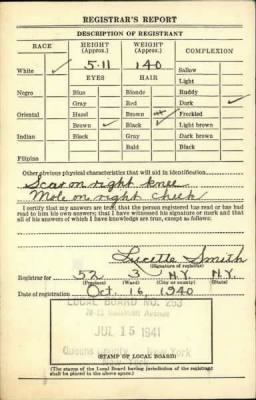 REGISTRAR'S REPORT
DESCRIPTION OF REGISTRANT
RACE
HEIGHT (Approx.)
WEIGHT (Approx.)
COMPLEXION
White ✓
5-11
140
Sallow
EYES
HAIR
Light
Negro
Blue
Blonde
Ruddy
Gray
Red
Dark ✓
Oriental
Hazel
Brown
Freckled
Brown ✓
Black ✓
Light brown
Indian
Black
Gray
Dark brown
Bald
Black
Filipino
Other obvious physical characteristics that will aid in identification
Scar on right knee
Mole on right cheek
I certify that my answers are true; that the person registered has read or has had
read to him his own answers; that I have witnessed his signature or mark and that
all of his answers of which I have knowledge are true, except as follows:
Lucette Smith
(Signature of registrar)
Registrar for 52 3 N.Y. N.Y.
(Precinct) (Ward) (City or county) (State)
Date of registration Oct 16, 1940
LOCAL BOARD NO. 263
JUL 15 1941
Queens County New York
(STAMP OF LOCAL BOARD)
(The stamp of the Local Board having jurisdiction of the registrant
shall be placed in the above space.)